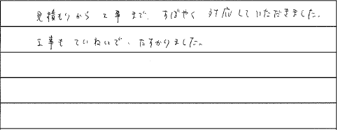 見積もりから工事まで、すばやく対応していただきました。
工事もていねいで、たすかりました。